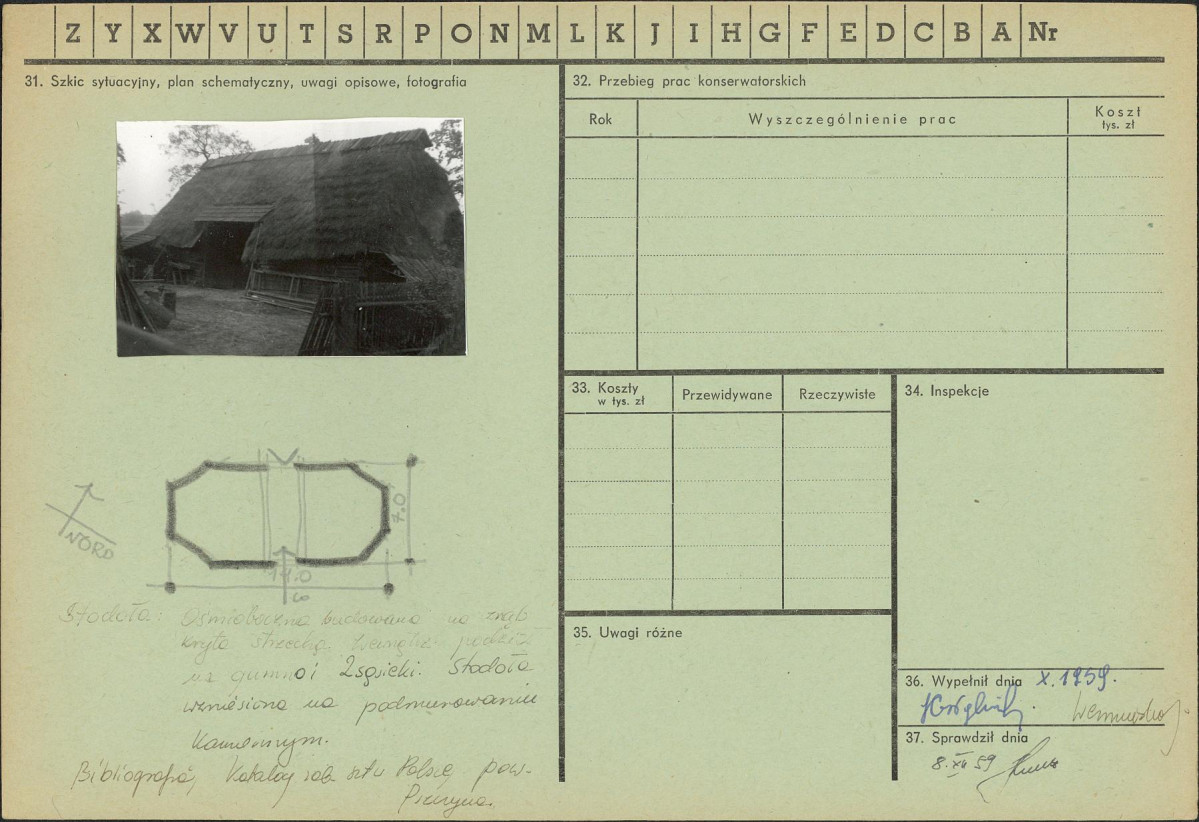 Z Y X W V U T S R P O N M L K J I H G F E D C B A Nr
31. Szkic sytuacyjny, plan schematyczny, uwagi opisowe, fotografia
NORD
7.0
14.0
Stodoła: Ośmioboczna budowana na zrąb
kryta strzechą. Wewnątrz podział
na gumno i 2 sąsieki. Stodoła
wzniesiona na podmurowaniu
kamiennym.
Bibliografia, Katalog zab. sztu Polsce, pow.
Pszczyna.
32. Przebieg prac konserwatorskich
Rok
Wyszczególnienie prac
Koszt
tys. zł
33. Koszty
w tys. zł
Przewidywane
Rzeczywiste
34. Inspekcje
35. Uwagi różne
36. Wypełnił dnia X. 1959.
37. Sprawdził dnia
8. XII 59